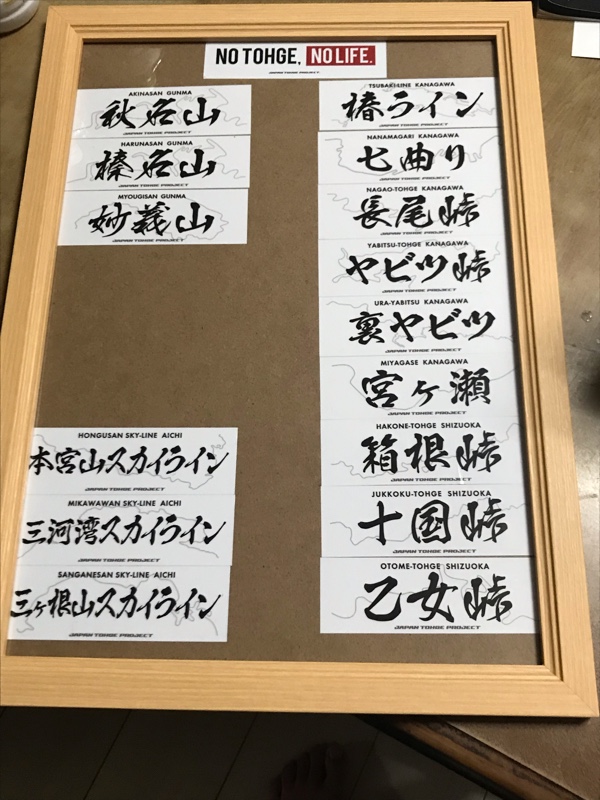 NO TOHGE, NO LIFE.
JAPAN TOHGE PROJECT
AKINASAN GUNMA
秋名山
JAPAN TOHGE PROJECT
HARUNASAN GUNMA
榛名山
JAPAN TOHGE PROJECT
MYOUGISAN GUNMA
妙義山
JAPAN TOHGE PROJECT
HONGUSAN SKY-LINE AICHI
本宮山スカイライン
JAPAN TOHGE PROJECT
MIKAWAWAN SKY-LINE AICHI
三河湾スカイライン
JAPAN TOHGE PROJECT
SANGANESAN SKY-LINE AICHI
三ヶ根山スカイライン
JAPAN TOHGE PROJECT
TSUBAKI-LINE KANAGAWA
椿ライン
JAPAN TOHGE PROJECT
NANAMAGARI KANAGAWA
七曲り
JAPAN TOHGE PROJECT
NAGAO-TOHGE KANAGAWA
長尾峠
JAPAN TOHGE PROJECT
YABITSU-TOHGE KANAGAWA
ヤビツ峠
JAPAN TOHGE PROJECT
URA-YABITSU KANAGAWA
裏ヤビツ
JAPAN TOHGE PROJECT
MIYAGASE KANAGAWA
宮ヶ瀬
JAPAN TOHGE PROJECT
HAKONE-TOHGE SHIZUOKA
箱根峠
JAPAN TOHGE PROJECT
JUKKOKU-TOHGE SHIZUOKA
十国峠
JAPAN TOHGE PROJECT
OTOME-TOHGE SHIZUOKA
乙女峠
JAPAN TOHGE PROJECT